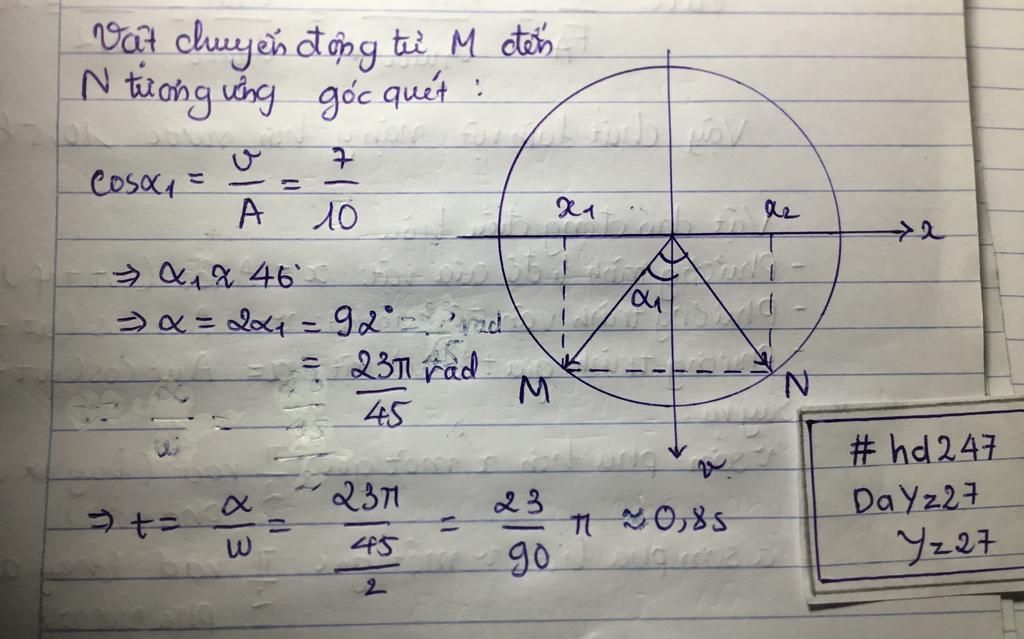 Vật chuyển động từ M đến
N tương ứng góc quét :
cosα₁ = v/A = 7/10
⇒ α₁ ≈ 46°
⇒ α = 2α₁ = 92° = rad
= 23π/45 rad
⇒ t = α/w = 23π/45/2 = 23/90 π ≈ 0,8s
x₁
x₂
x
α₁
M
N
v
# hd247
DaYz27
Yz27